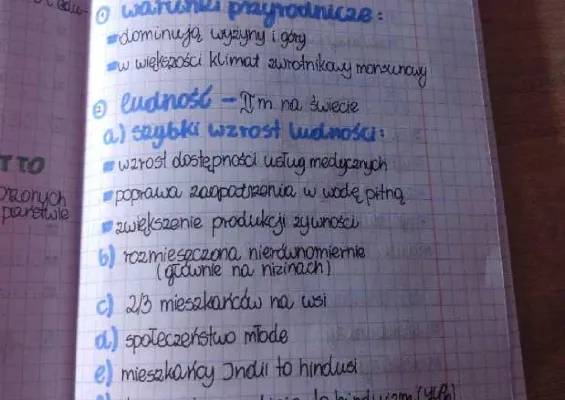 ① warunki przyrodnicze:
dominują wyżyny i góry
w większości klimat zwrotnikowy monsunowy
② ludność – II m na świecie
a) szybki wzrost ludności:
wzrost dostępności usług medycznych
poprawa zaopatrzenia w wodę pitną
zwiększenie produkcji żywności
b) rozmieszczona nierównomiernie
(głównie na nizinach)
c) 2/3 mieszkańców na wsi
d) społeczeństwo młode
e) mieszkańcy Indii to hindusi
to hinduizm
TTO
państwie